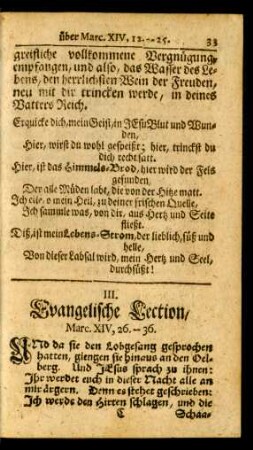 über Marc. XIV, 12.--25. 33
greifliche vollkommene Vergnügung,
empfangen, und also, das Wasser des Le-
bens, den herrlichsten Wein der Freuden,
neu mit dir trincken werde, in deines
Vatters Reich.
Erquicke dich, mein Geist, in JEsu Blut und Wun-
den,
Hier, wirst du wohl gespeißt; hier, trinckst du
dich recht satt.
Hier, ist das Himmels-Brod, hier wird der Fels
gefunden,
Der alle Müden labt, die von der Hitze matt.
Ich eile, o mein Heil, zu deiner frischen Quelle,
Ich sammle was, von dir, aus Hertz und Seite
fließt.
Diß, ist mein Lebens-Strom, der lieblich, süß und
helle,
Von dieser Labsal wird, mein Hertz und Seel,
durchsüßt!
III.
Evangelische Lection,
Marc. XIV, 26.--36.
UND da sie den Lobgesang gesprochen
hatten, giengen sie hinaus an den Oel-
berg. Und JEsus sprach zu ihnen:
Ihr werdet euch in dieser Nacht alle an
mir ärgern. Denn es stehet geschrieben:
Ich werde den Hirten schlagen, und die
C Schaa-